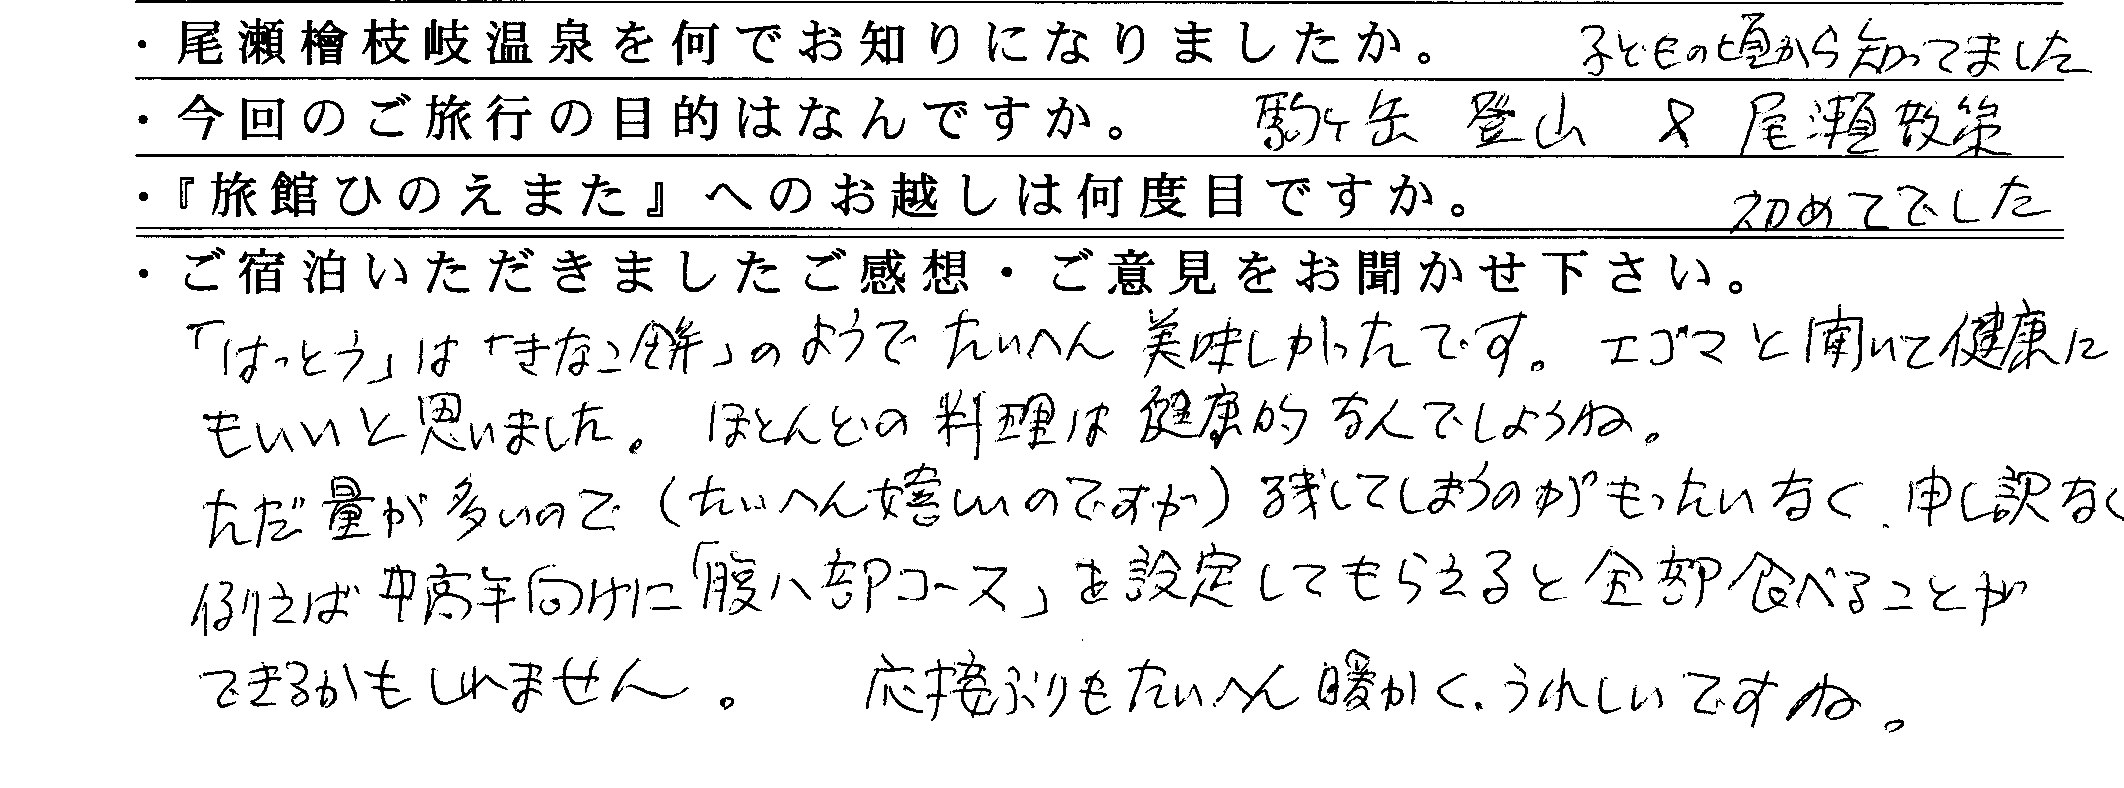 ・尾瀬檜枝岐温泉を何でお知りになりましたか。 子どもの頃から知ってました
・今回のご旅行の目的はなんですか。 駒ヶ岳 登山 & 尾瀬散策
・『旅館ひのえまた』へのお越しは何度目ですか。 初めてでした
・ご宿泊いただきましたご感想・ご意見をお聞かせ下さい。
「はっとう」は「きなこ餅」のようでたいへん美味しかったです。エゴマと聞いて健康に
もいいと思いました。ほとんどの料理は健康的なんでしょうね。
ただ量が多いので（たいへん嬉しいのですが）残してしまうのがもったいなく、申し訳なく
例えば中高年向けに「腹八部コース」を設定してもらえると全部食べることが
できるかもしれません。 応接ぶりもたいへん暖かく、うれしいですね。